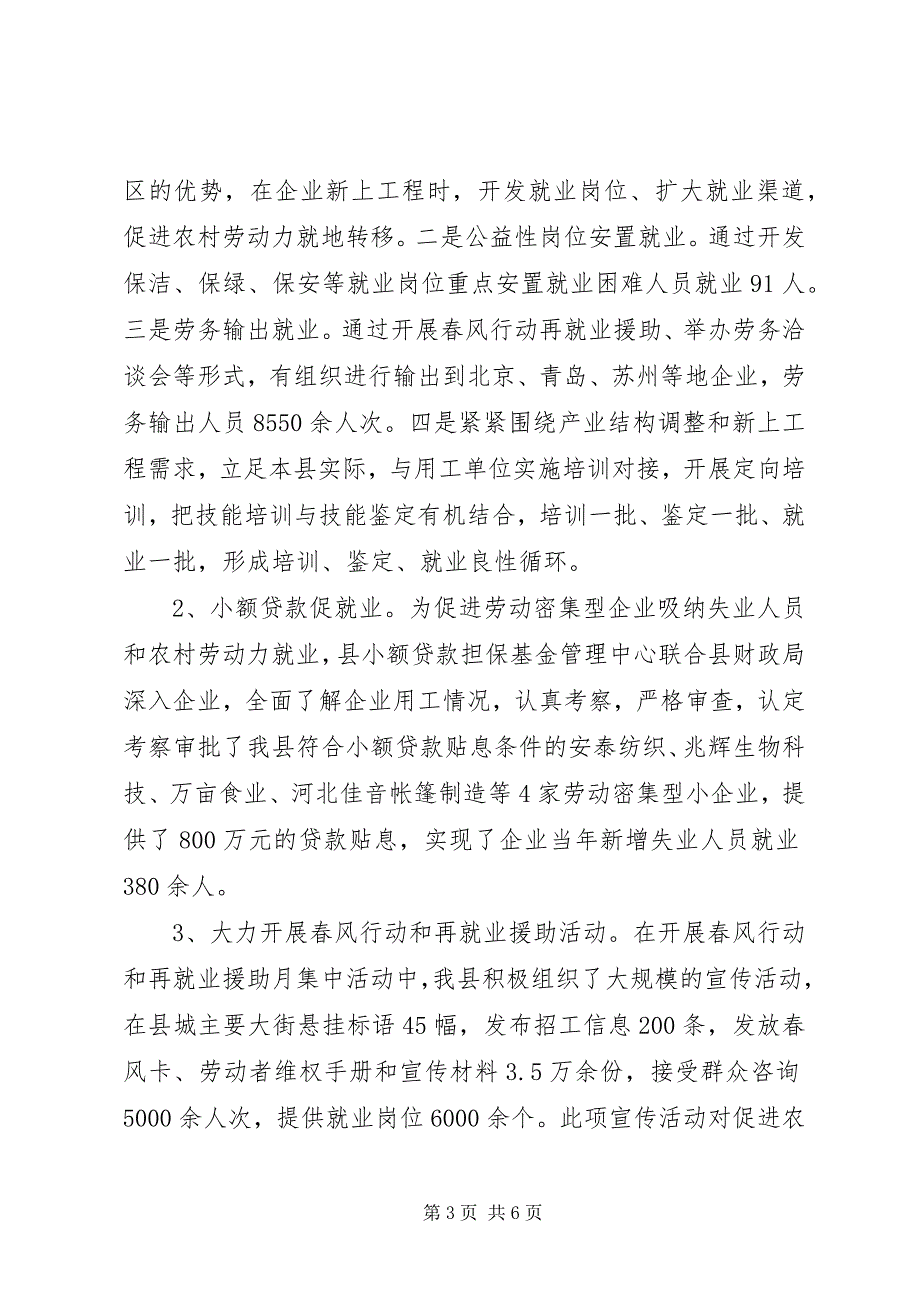 区的优势，在企业新上工程时，开发就业岗位、扩大就业渠道，
促进农村劳动力就地转移。二是公益性岗位安置就业。通过开发
保洁、保绿、保安等就业岗位重点安置就业困难人员就业 91 人。
三是劳务输出就业。通过开展春风行动再就业援助、举办劳务洽
谈会等形式，有组织进行输出到北京、青岛、苏州等地企业，劳
务输出人员 8550 余人次。四是紧紧围绕产业结构调整和新上工
程需求，立足本县实际，与用工单位实施培训对接，开展定向培
训，把技能培训与技能鉴定有机结合，培训一批、鉴定一批、就
业一批，形成培训、鉴定、就业良性循环。
2、小额贷款促就业。为促进劳动密集型企业吸纳失业人员
和农村劳动力就业，县小额贷款担保基金管理中心联合县财政局
深入企业，全面了解企业用工情况，认真考察，严格审查，认定
考察审批了我县符合小额贷款贴息条件的安泰纺织、兆辉生物科
技、万亩食业、河北佳音帐篷制造等 4 家劳动密集型小企业，提
供了 800 万元的贷款贴息，实现了企业当年新增失业人员就业
380 余人。
3、大力开展春风行动和再就业援助活动。在开展春风行动
和再就业援助月集中活动中，我县积极组织了大规模的宣传活动，
在县城主要大街悬挂标语 45 幅，发布招工信息 200 条，发放春
风卡、劳动者维权手册和宣传材料 3.5 万余份，接受群众咨询
5000 余人次，提供就业岗位 6000 余个。此项宣传活动对促进农
第 3 页 共 6 页